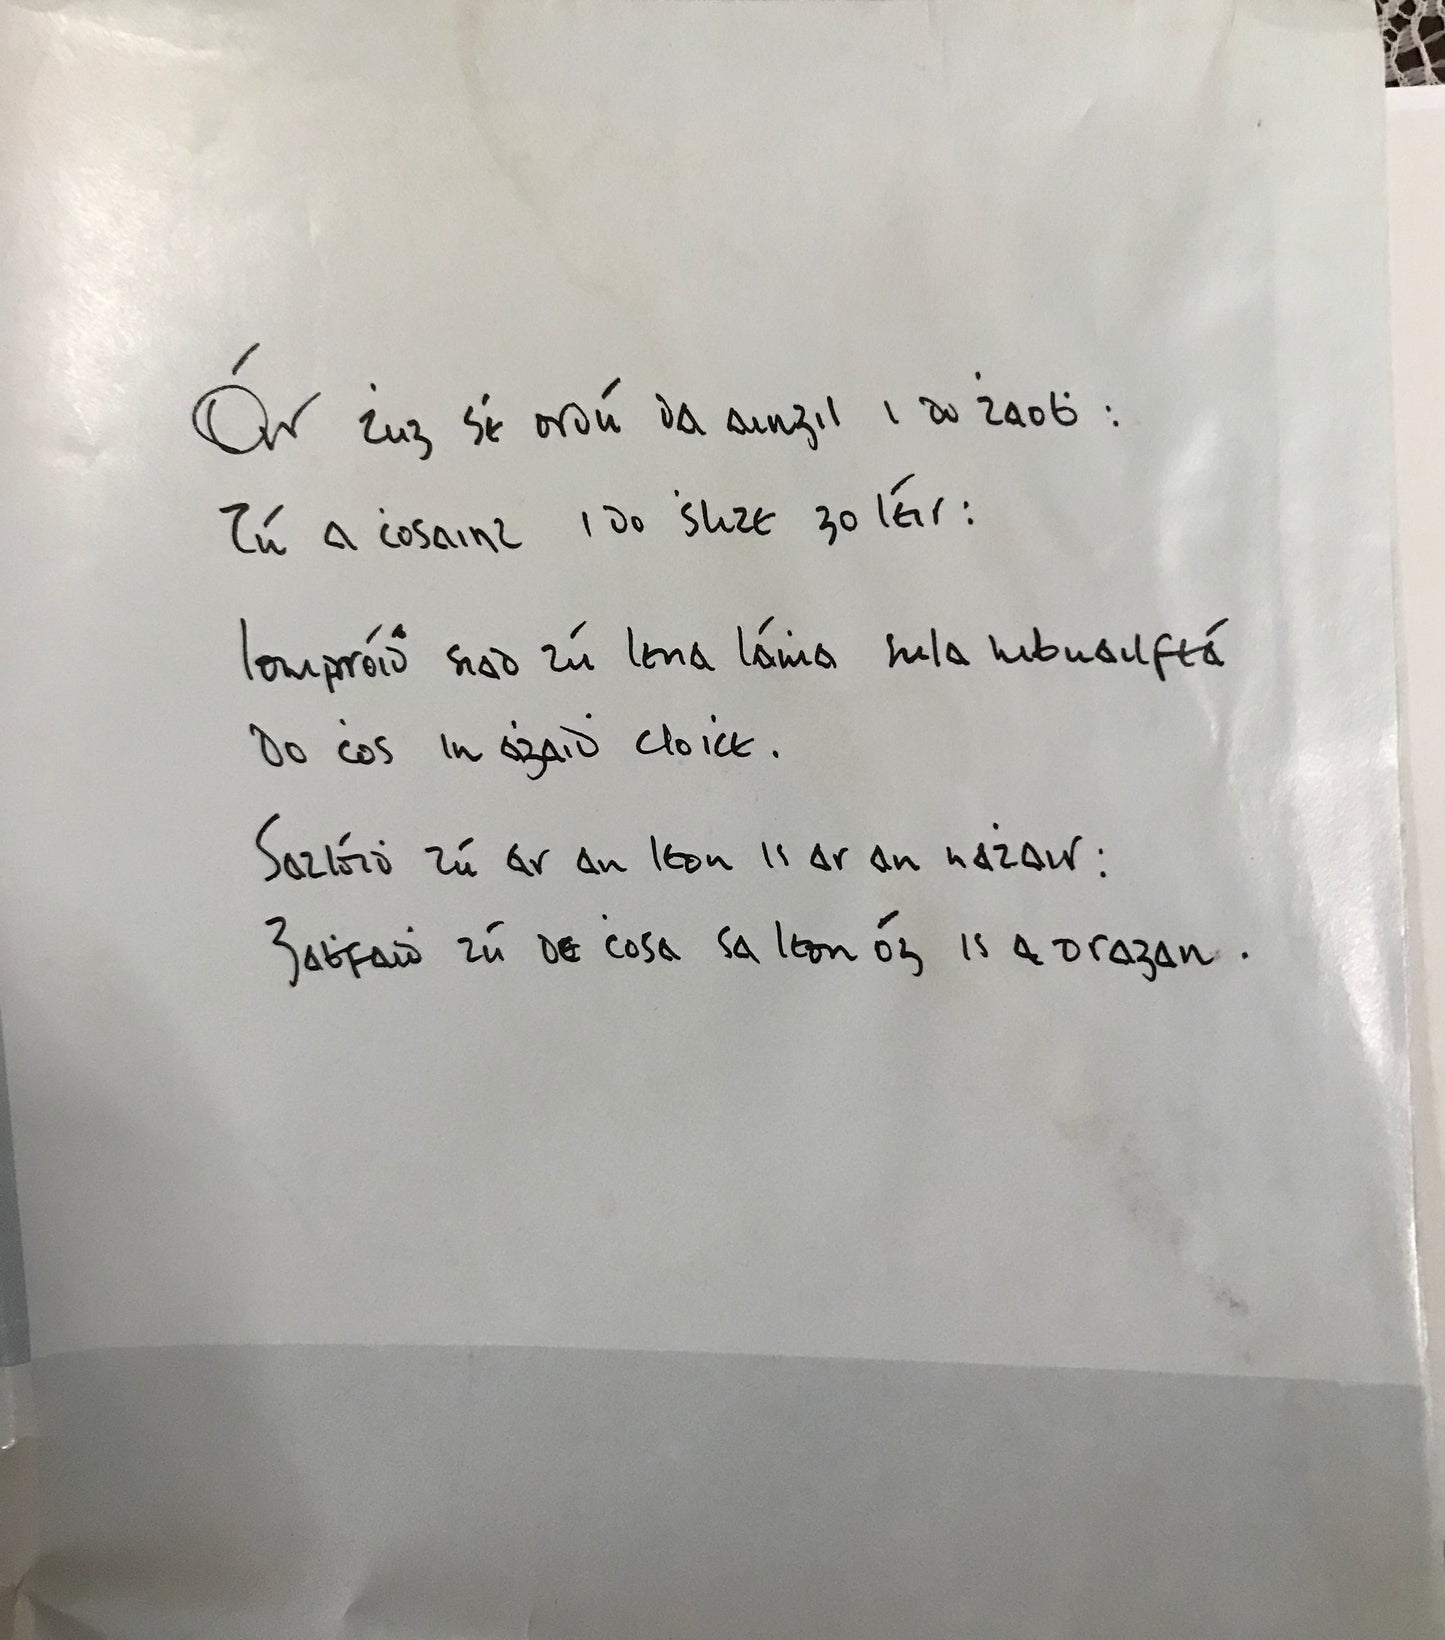 Óir ṫug sé ordú da aingil i do ṫaoḃ:
Tú a ċosaint i do ṡlite go léir:
Iompróiḋ siad tú lena láṁa sula mbuailfeá
do ċos in aġaiḋ cloiċe.
Satlóiḋ tú ar an leon is ar an naṫair:
Gaḃfaiḋ tú de ċosa sa leon óg is a dragan.